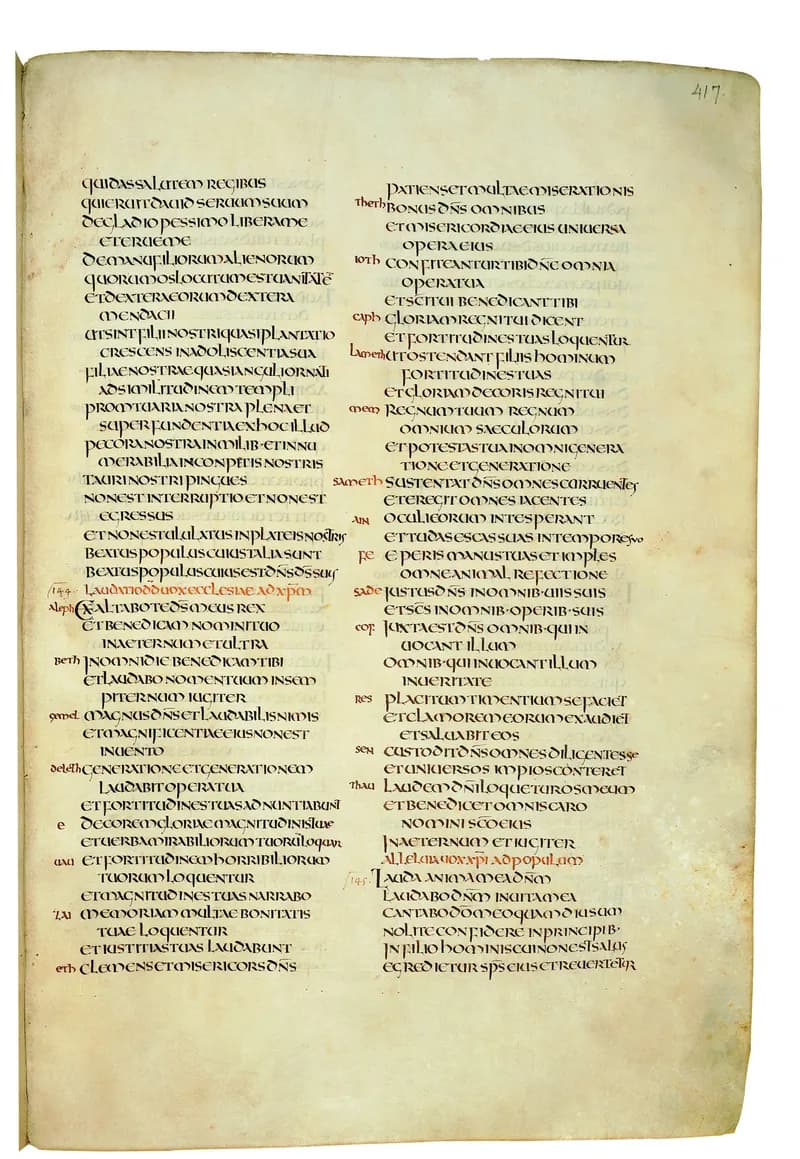 417.
QUI DAS SALUTEM REGIBUS
QUI ERUIT DAUID SERUUM SUUM
DE GLADIO PESSIMO LIBERA ME
ET ERUE ME
DE MANU FILIORUM ALIENORUM
QUORUM OS LOCUTUM EST UANITATĒ
ET DEXTERA EORUM DEXTERA
MENDACII
UT SINT FILII NOSTRI QUASI PLANTATIO
CRESCENS IN ADOLISCENTIA SUA
FILIAE NOSTRAE QUASI ANGULI ORNATI
AD SIMILITUDINEM TEMPLI
PROMTUARIA NOSTRA PLENA ET
SUPERFUNDENTIA EX HOC ILLUD
PECORA NOSTRA IN MILIB· ET INNU
MERABILIA IN CONPITIS NOSTRIS
TAURI NOSTRI PINGUES
NON EST INTERRUPTIO ET NON EST
EGRESSUS
ET NON EST ULULATUS IN PLATEIS NOSTRIS
BEATUS POPULUS CUIUS TALIA SUNT
BEATUS POPULUS CUIUS EST DN̄S D̄S SUUS
144· LAUDATIO DD UOX ECCLESIAE AD XP̄M
Aleph EXALTABO TE D̄S MEUS REX
ET BENEDICAM NOMINI TUO
IN AETERNUM ET ULTRA
BETH IN OMNI DIE BENEDICAM TIBI
ET LAUDABO NOMEN TUUM IN SEM
PITERNUM IUGITER
gemel MAGNUS DN̄S ET LAUDABILIS NIMIS
ET MAGNIFICENTIAE EIUS NON EST
INUENTO
deleth GENERATIONE ET GENERATIONEM
LAUDABIT OPERA TUA
ET FORTITUDINES TUAS ADNUNTIABUNT
e DECOREM GLORIAE MAGNITUDINIS TUAE
ET UERBA MIRABILIORUM TUORŪ LOQUAR
uau ET FORTITUDINEM HORRIBILIORUM
TUORUM LOQUENTUR
ET MAGNITUDINES TUAS NARRABO
ZAI MEMORIAM MULTAE BONITATIS
TUAE LOQUENTUR
ET IUSTITIAS TUAS LAUDABUNT
eth CLEMENS ET MISERICORS DN̄S
PATIENS ET MULTAE MISERATIONIS
Theth BONUS DN̄S OMNIBUS
ET MISERICORDIAE EIUS UNIUERSA
OPERA EIUS
IOTH CONFITEANTUR TIBI DN̄E OMNIA
OPERA TUA
ET SC̄I TUI BENEDICANT TIBI
caph GLORIAM REGNI TUI DICENT
ET FORTITUDINES TUAS LOQUENTUR
Lameth UT OSTENDANT FILIIS HOMINUM
FORTITUDINES TUAS
ET GLORIAM DECORIS REGNI TUI
mem REGNUM TUUM REGNUM
OMNIUM SAECULORUM
ET POTESTAS TUA IN OMNI GENERA
TIONE ET GENERATIONE
SAMETH SUSTENTAT DN̄S OMNES CORRUENTES
ET EREGIT OMNES IACENTES
AIN OCULI EORUM IN TE SPERANT
ET TU DAS ESCAS SUAS IN TEMPORE SUO
FE EPERIS MANUS TUAS ET IMPLES
OMNE ANIMAL REFECTIONE
SADE IUSTUS DN̄S IN OMNIB· UIIS SUIS
ET SC̄S IN OMNIB· OPERIB· SUIS
COF IUXTA EST DN̄S OMNIB· QUI IN
UOCANT ILLUM
OMNIB· QUI INUOCANT ILLUM
IN UERITATE
RES PLACITUM TIMENTIUM SE FACIET
ET CLAMOREM EORUM EXAUDIET
ET SALUABIT EOS
SEN CUSTODIT DN̄S OMNES DILIGENTES SE
ET UNIUERSOS IMPIOS CONTERET
Thau LAUDEM DN̄I LOQUETUR OS MEUM
ET BENEDICET OMNIS CARO
NOMINI SC̄O EIUS
IN AETERNUM ET IUGITER
ALLELUIA UOX XP̄I AD POPULUM
145· LAUDA ANIMA MEA DN̄M
LAUDABO DN̄M IN UITA MEA
CANTABO D̄O MEO QUAMDIU SUM
NOLITE CONFIDERE IN PRINCIPIB·
IN FILIO HOMINIS CUI NON EST SALUS
EGREDIETUR SP̄S EIUS ET REUERTETUR